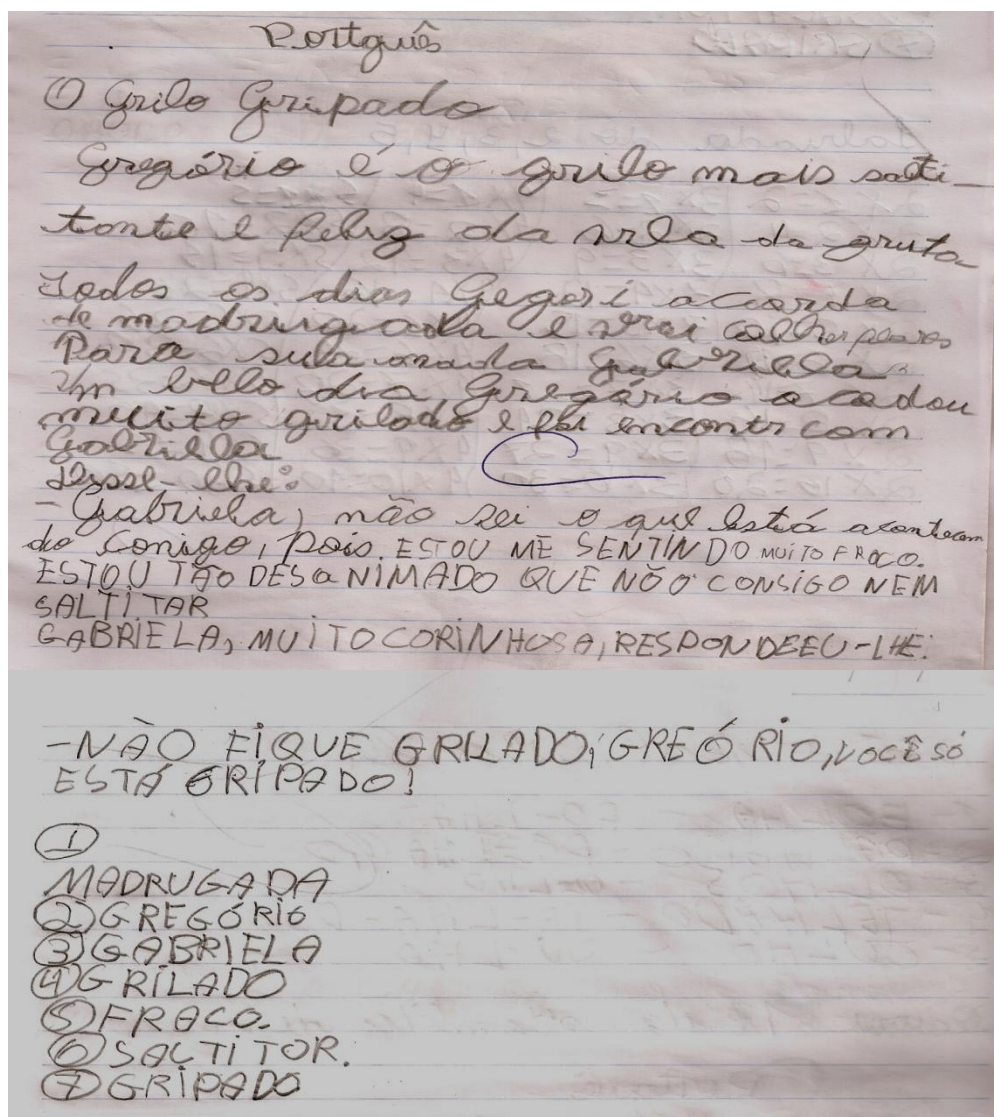 Portguês
O Grilo Gripado
Gregório é o grilo mais salti-
tante e feliz da vila da gruta
Todos os dias Gegori acorda
de madruigada e vai colher
Para sula amada Gabriella
Um bello dia, Gregário acadou
muito grilado e foi encontr com
Gabriella
Disse-lhe:
- Gabriela, não sei o que está acontecem
do conigo, pois. ESTOU ME SENTINDO MUITO FRACO.
ESTOU TÃO DESANIMADO QUE NÕO CONSIGO NEM
SALTITAR
GABRIELA, MUITO CORINHOSA, RESPONDEEU-LHE:
-NÃO FIQUE GRILADO, GREÓRIO, VOCÊ SÓ
ESTÁ GRIPADO!
1
MADRUGADA
2 GREGÓRIO
3 GABRIELA
4 GRILADO
5 FRACO.
6 SALTITOR.
7 GRIPADO